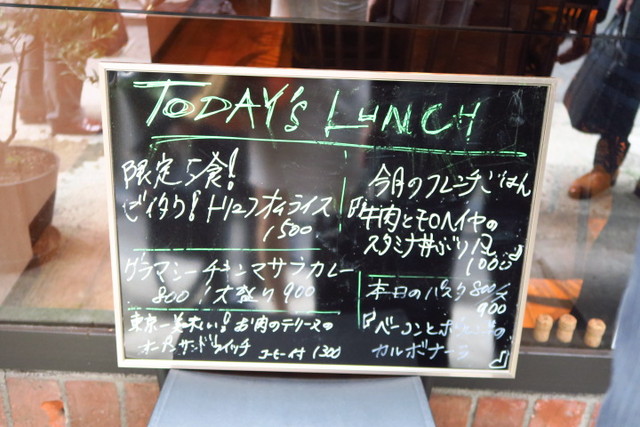 TODAY's LUNCH
限定5食!
ゼイタク!トリュフオムライス
1500
グラマシーチキンマサラカレー
800 大盛り 900
東京一美味い!お肉のテリーヌの
オープンサンドウィッチ コーヒー付 1300
今月のフレンチごはん
『牛肉とモロヘイヤの
スタミナ丼ぶり風』
1000
本日のパスタ 800
900
『ベーコンとポ
カルボナーラ』